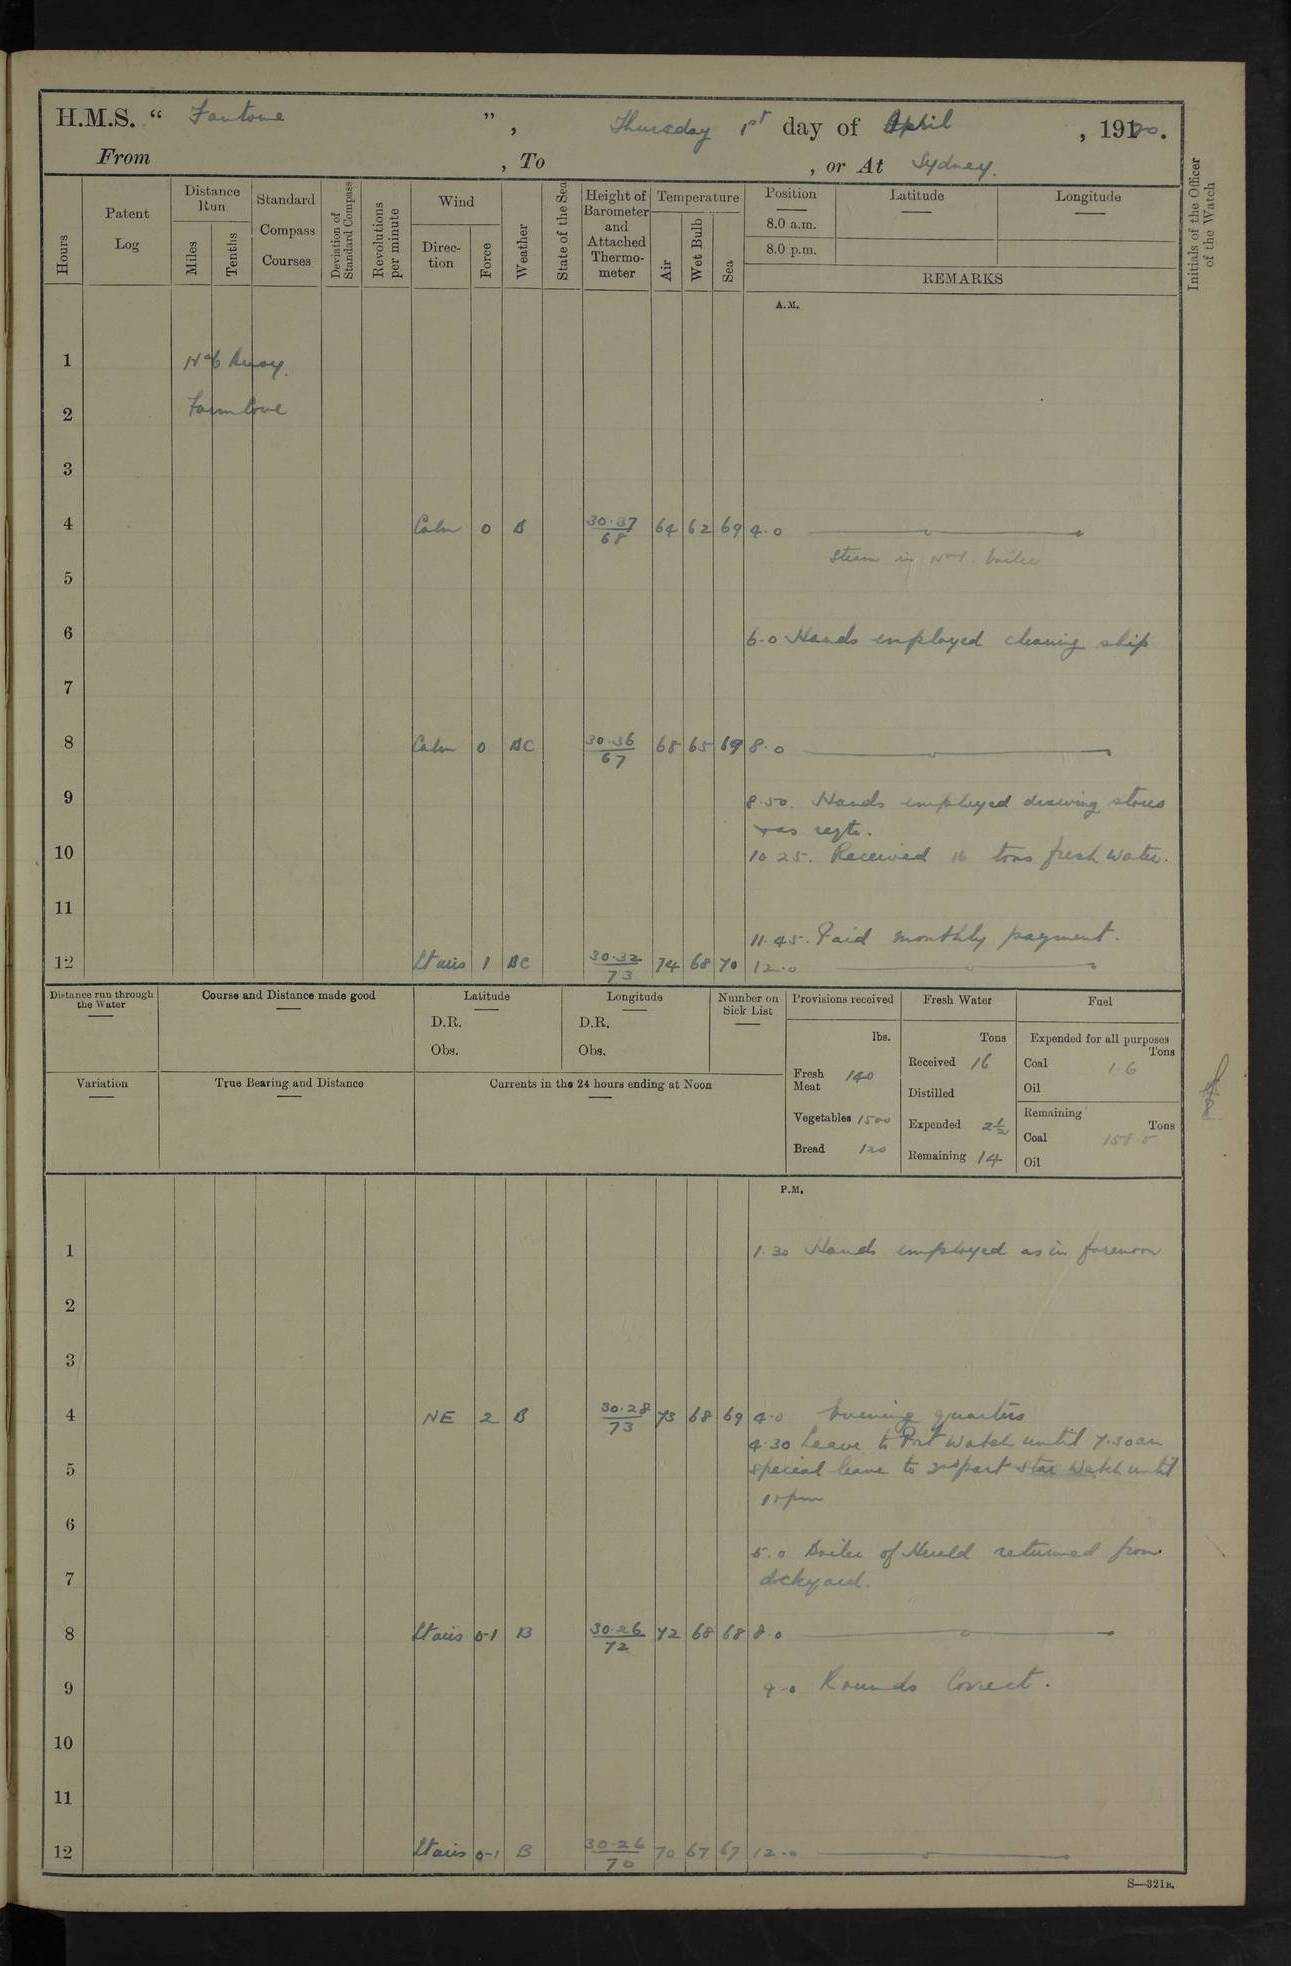 H.M.S. “ Fantome ”, Thursday 1st day of April, 1920.
From , To , or At Sydney.
Hours
Patent Log
Distance Run
Miles
Tenths
Standard Compass Courses
Deviation of Standard Compass
Revolutions per minute
Wind
Direction
Force
Weather
State of the Sea
Height of Barometer and Attached Thermometer
Temperature
Air
Wet Bulb
Sea
Position
Latitude
Longitude
8.0 a.m.
8.0 p.m.
REMARKS
Initials of the Officer of the Watch
A.M.
1 No 6 Buoy.
2 Farm Cove
3
4 Calm 0 B 30.37/68 64 62 69 4.0
Steam in No 1. boiler
5
6 6.0 Hands employed cleaning ship
7
8 Calm 0 BC 30.36/67 68 65 69 8.0
9 8.50. Hands employed drawing stores
+as reqte.
10 10 25. Received 16 tons fresh water.
11
11.45. Paid monthly payment.
12 Lt airs 1 BC 30.32/73 74 68 70 12.0
Distance run through the Water
Course and Distance made good
Latitude
D.R.
Obs.
Longitude
D.R.
Obs.
Number on Sick List
Provisions received
lbs.
Fresh Meat 140
Vegetables 1500
Bread 120
Fresh Water
Tons
Received 16
Distilled
Expended 2½
Remaining 14
Fuel
Expended for all purposes
Tons
Coal 1.6
Oil
Remaining
Tons
Coal 158.5
Oil
Variation
True Bearing and Distance
Currents in the 24 hours ending at Noon
P.M.
1 1.30 Hands employed as in forenoon
2
3
4 NE 2 B 30.28/73 73 68 69 4.0 Evening quarters
4.30 Leave to Port Watch until 7.30am
5 special leave to 2nd part star Watch until
10pm
6
5.0 Boiler of Herald returned from
7 dockyard.
8 Lt airs 0-1 B 30.26/72 72 68 68 8.0
9 9.0 Rounds Correct.
10
11
12 Lt airs 0-1 B 30.26/70 70 67 67 12.0
S—321B.